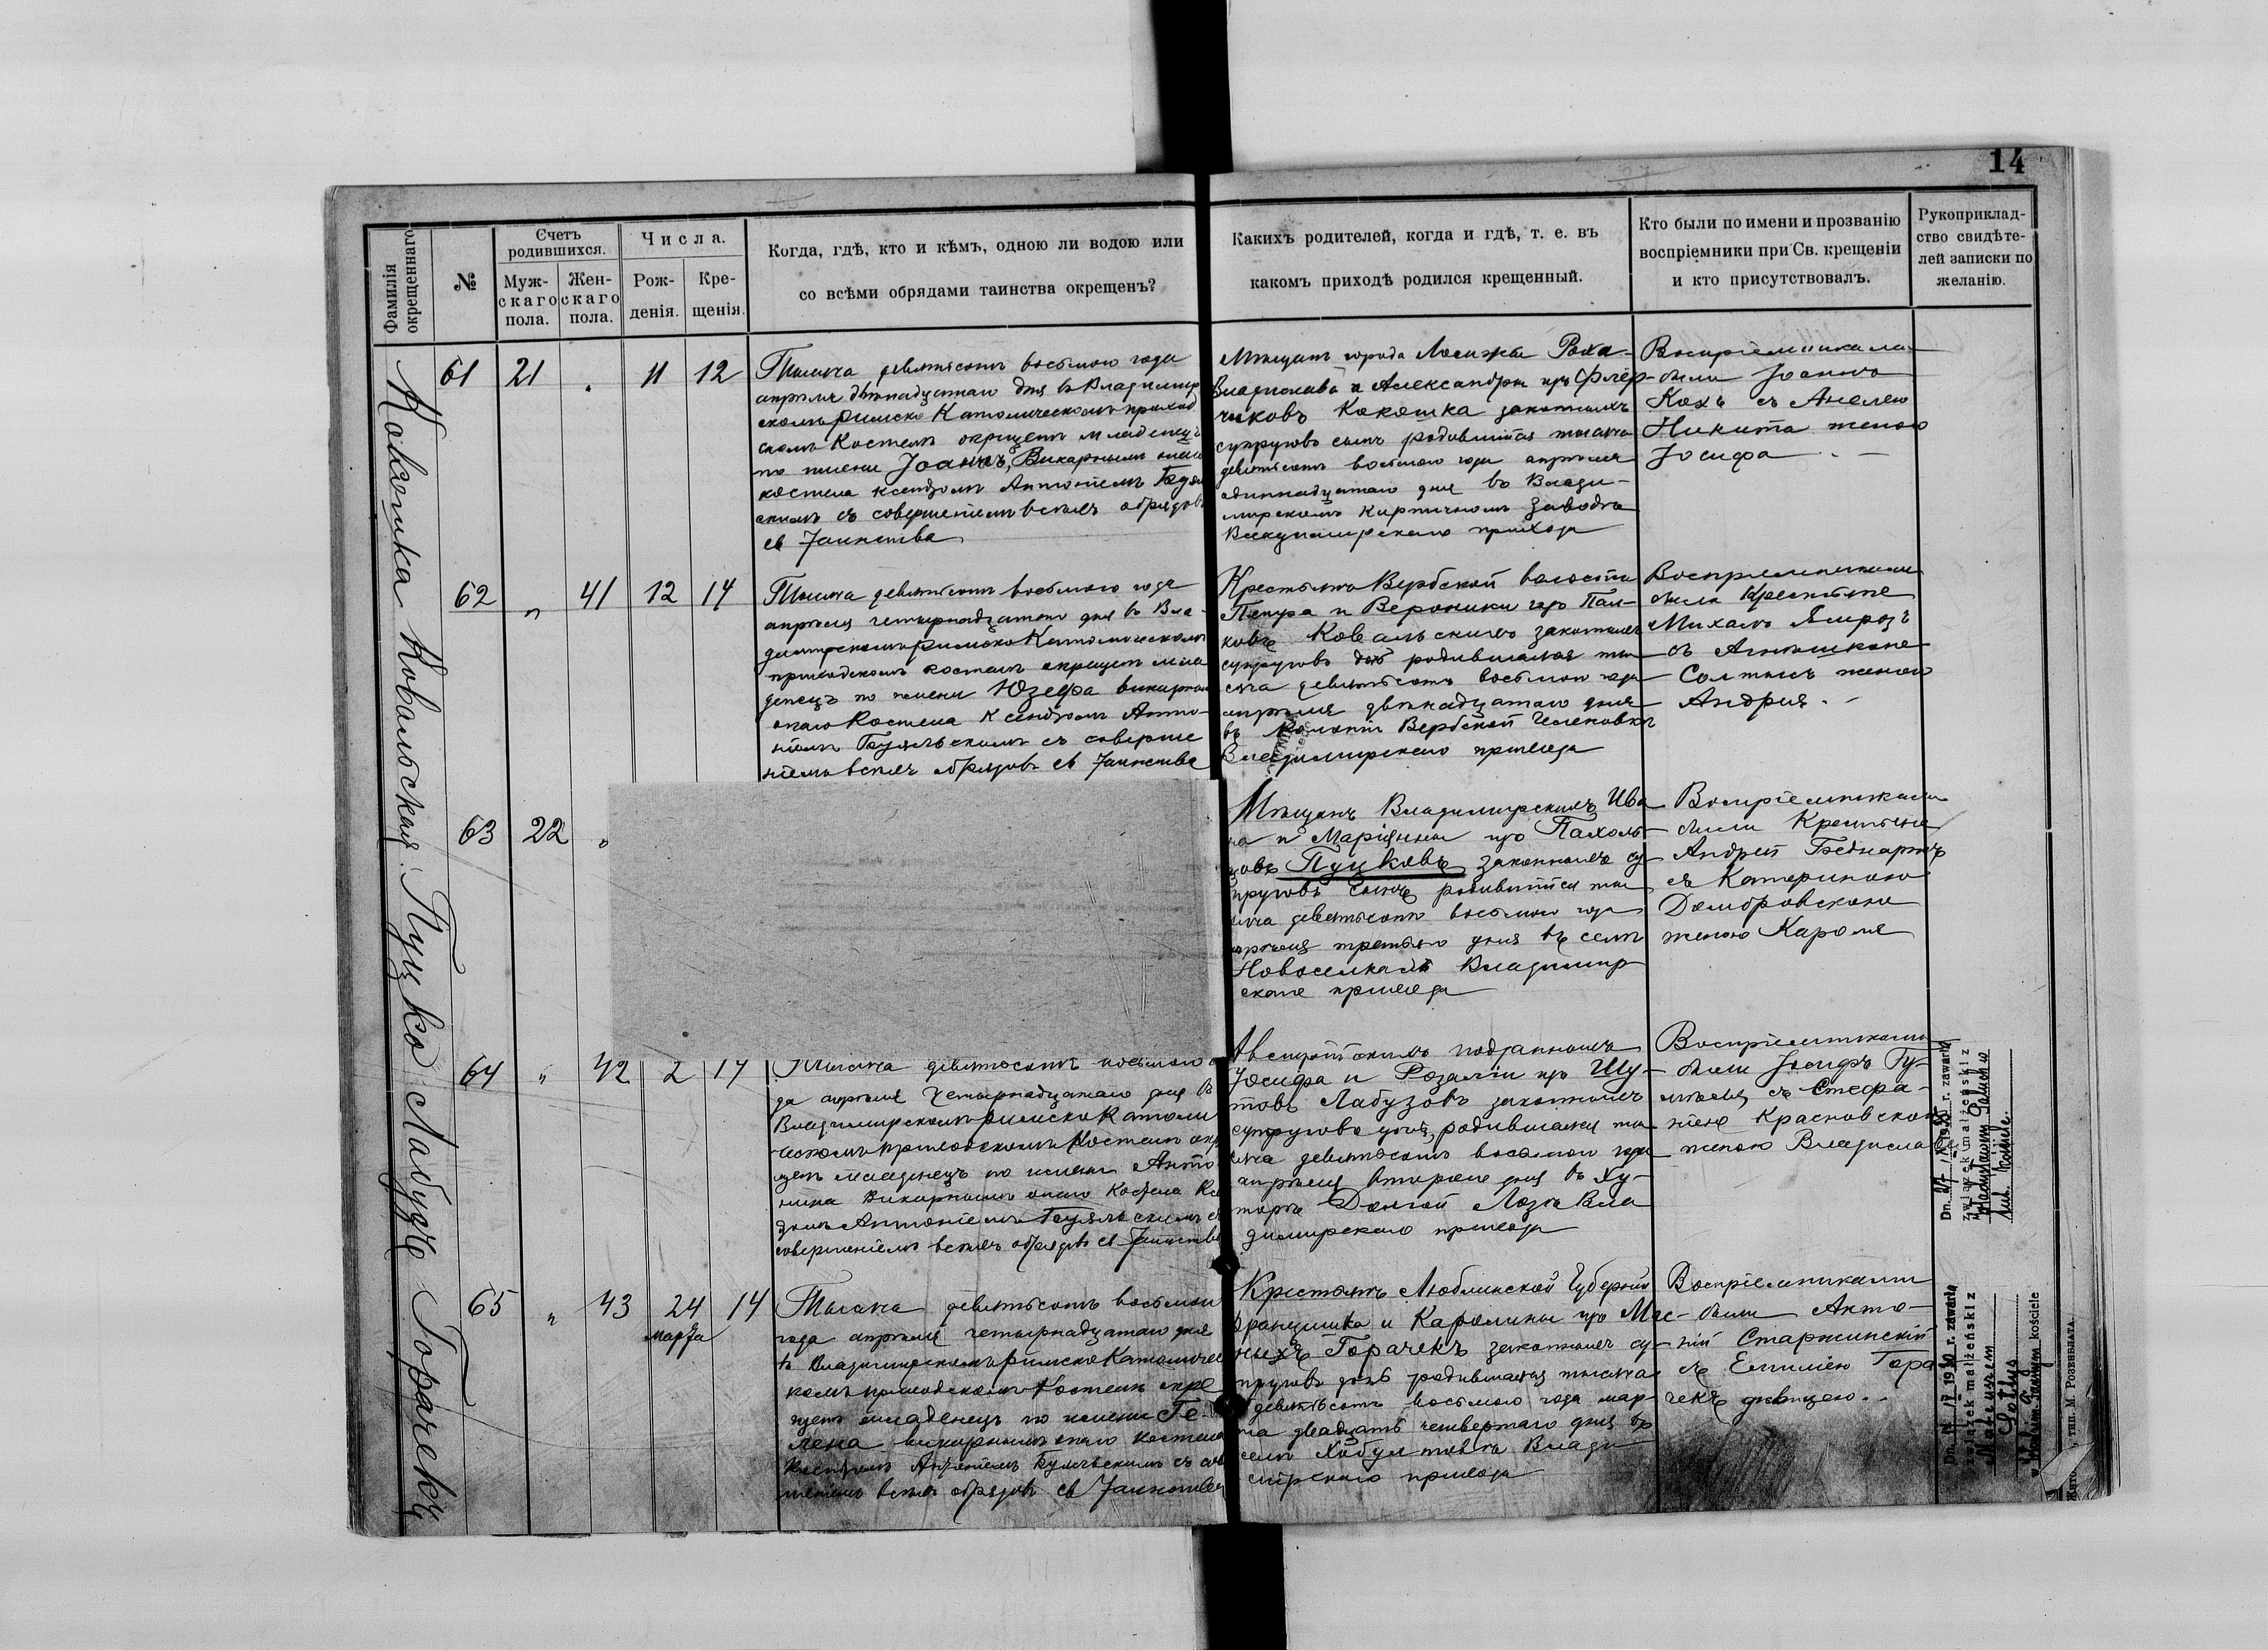 14
Фамилія
окрещеннаго
№
Счетъ
родившихся.
Муж-
скаго
пола.
Жен-
скаго
пола.
Числа.
Рож-
денія.
Кре-
щенія.
Когда, гдѣ, кто и кѣмъ, одною ли водою или
со всѣми обрядами таинства окрещенъ?
Какихъ родителей, когда и гдѣ, т. е. въ
какомъ приходѣ родился крещенный.
Кто были по имени и прозванію
воспріемники при Св. крещеніи
и кто присутствовалъ.
Рукоприклад-
ство свидѣте-
лей записки по
желанію.
Ковальская Пуцко Лабузъ Горачекъ
61 21 11 12
Тысяча девятсотъ восьмого года
апрѣля двѣнадцатаго дня въ Владимир
скомъ Римско Католическомъ приход
скомъ Костелѣ окрещенъ младенецъ
по имени Іоаннъ, Викарнымъ
костела ксендзомъ Антоніемъ
скимъ съ совершеніемъ всѣхъ обрядовъ
св Таинства
Мѣщанъ города
Владислава и Александры изъ Флер-
чиковъ Кокошка законныхъ
супруговъ сынъ родившійся тысяча
девятсотъ восьмого года апрѣля
одиннадцатаго дня во Влади-
мирскомъ кирпичномъ заводѣ
Владимирскаго прихода
Воспріемниками
были Іоаннъ
Кохъ съ Анелею
Никита женою
Іосифа
62 „ 41 12 14
Тысяча девятсотъ восьмого года
апрѣля четырнадцатаго дня въ Вла-
димирскомъ Римско Католическомъ
приходскомъ костелѣ окрещенъ мла
денецъ по имени Юзефа викарным
онаго Костела Ксендзомъ Анто-
ніемъ съ соверше
ніемъ всѣхъ обрядовъ св Таинства
Крестьянъ Вербской волости
Петра и Вероники изъ
Ковальскихъ законныхъ
супруговъ дочь родившаяся ты
сяча девятсотъ восьмого года
апрѣля двѣнадцатаго дня
въ Колоніи Вербской
Владимирскаго прихода
Воспріемниками
были Крестьяне
Михаилъ
съ
Солтысъ женою
Андрея.
63 22 „
Мѣщанъ Владимирскихъ Ива
на и Маріянны изъ Пахоль-
цовъ Пуцковъ законныхъ су
пруговъ сынъ родившійся ты
сяча девятсотъ восьмого года
апрѣля третьяго дня въ селѣ
Новоселкахъ Владимир
скаго прихода
Воспріемниками
были Крестьяне
Андрей Беднаржъ
съ Катериною
Домбровскою
женою Кароля
64 „ 42 2 14
Тысяча девятсотъ восьмого
да апрѣля четырнадцатаго дня въ
Владимирскомъ Римско Католи
ческомъ приходскомъ Костелѣ окр
щенъ младенецъ по имени Анто
нина Викарнымъ онаго Костела Ксе
дзомъ Антоніемъ съ
совершеніемъ всѣхъ обрядовъ св Таинства
Австрійскихъ подданныхъ
Іосифа и Розаліи изъ Шу-
товъ Лабузовъ законныхъ
супруговъ дочь, родившаяся ты
сяча девятсотъ восьмого года
апрѣля второго дня въ Ху-
торѣ Долгой Лозѣ Вла
димирскаго прихода
Воспріемниками
были Іосифъ
съ Стефа-
ніею Красновскою
женою Владислава
Dn. 27 r. zawarła
związek małżeński z
Władysławem
65 „ 43 24 14
марта
Тысяча девятсотъ восьмого
года апрѣля четырнадцатаго дня
въ Владимирскомъ Римско Католичес
комъ приходскомъ Костелѣ окре
щенъ младенецъ по имени Ге-
лена викарнымъ онаго костела
Ксендзомъ Антоніемъ съ сов
шеніемъ всѣхъ обрядовъ св Таинства
Крестьянъ Люблинской Губерніи
Францишка и Каролины изъ Мас-
ныхъ Горачекъ законныхъ су
пруговъ дочь родившаяся тысяча
девятсотъ восьмого года мар-
та двадцать четвертаго дня въ
селѣ Влади
мірскаго прихода
Воспріемниками
были Анто-
ній Старжинскій
съ Емиліею Гора
чекъ дѣвицею.
Dn. 1930 r. zawarła
związek małżeński z
Mateuszem
w kościele
тип. М. Розенблата.